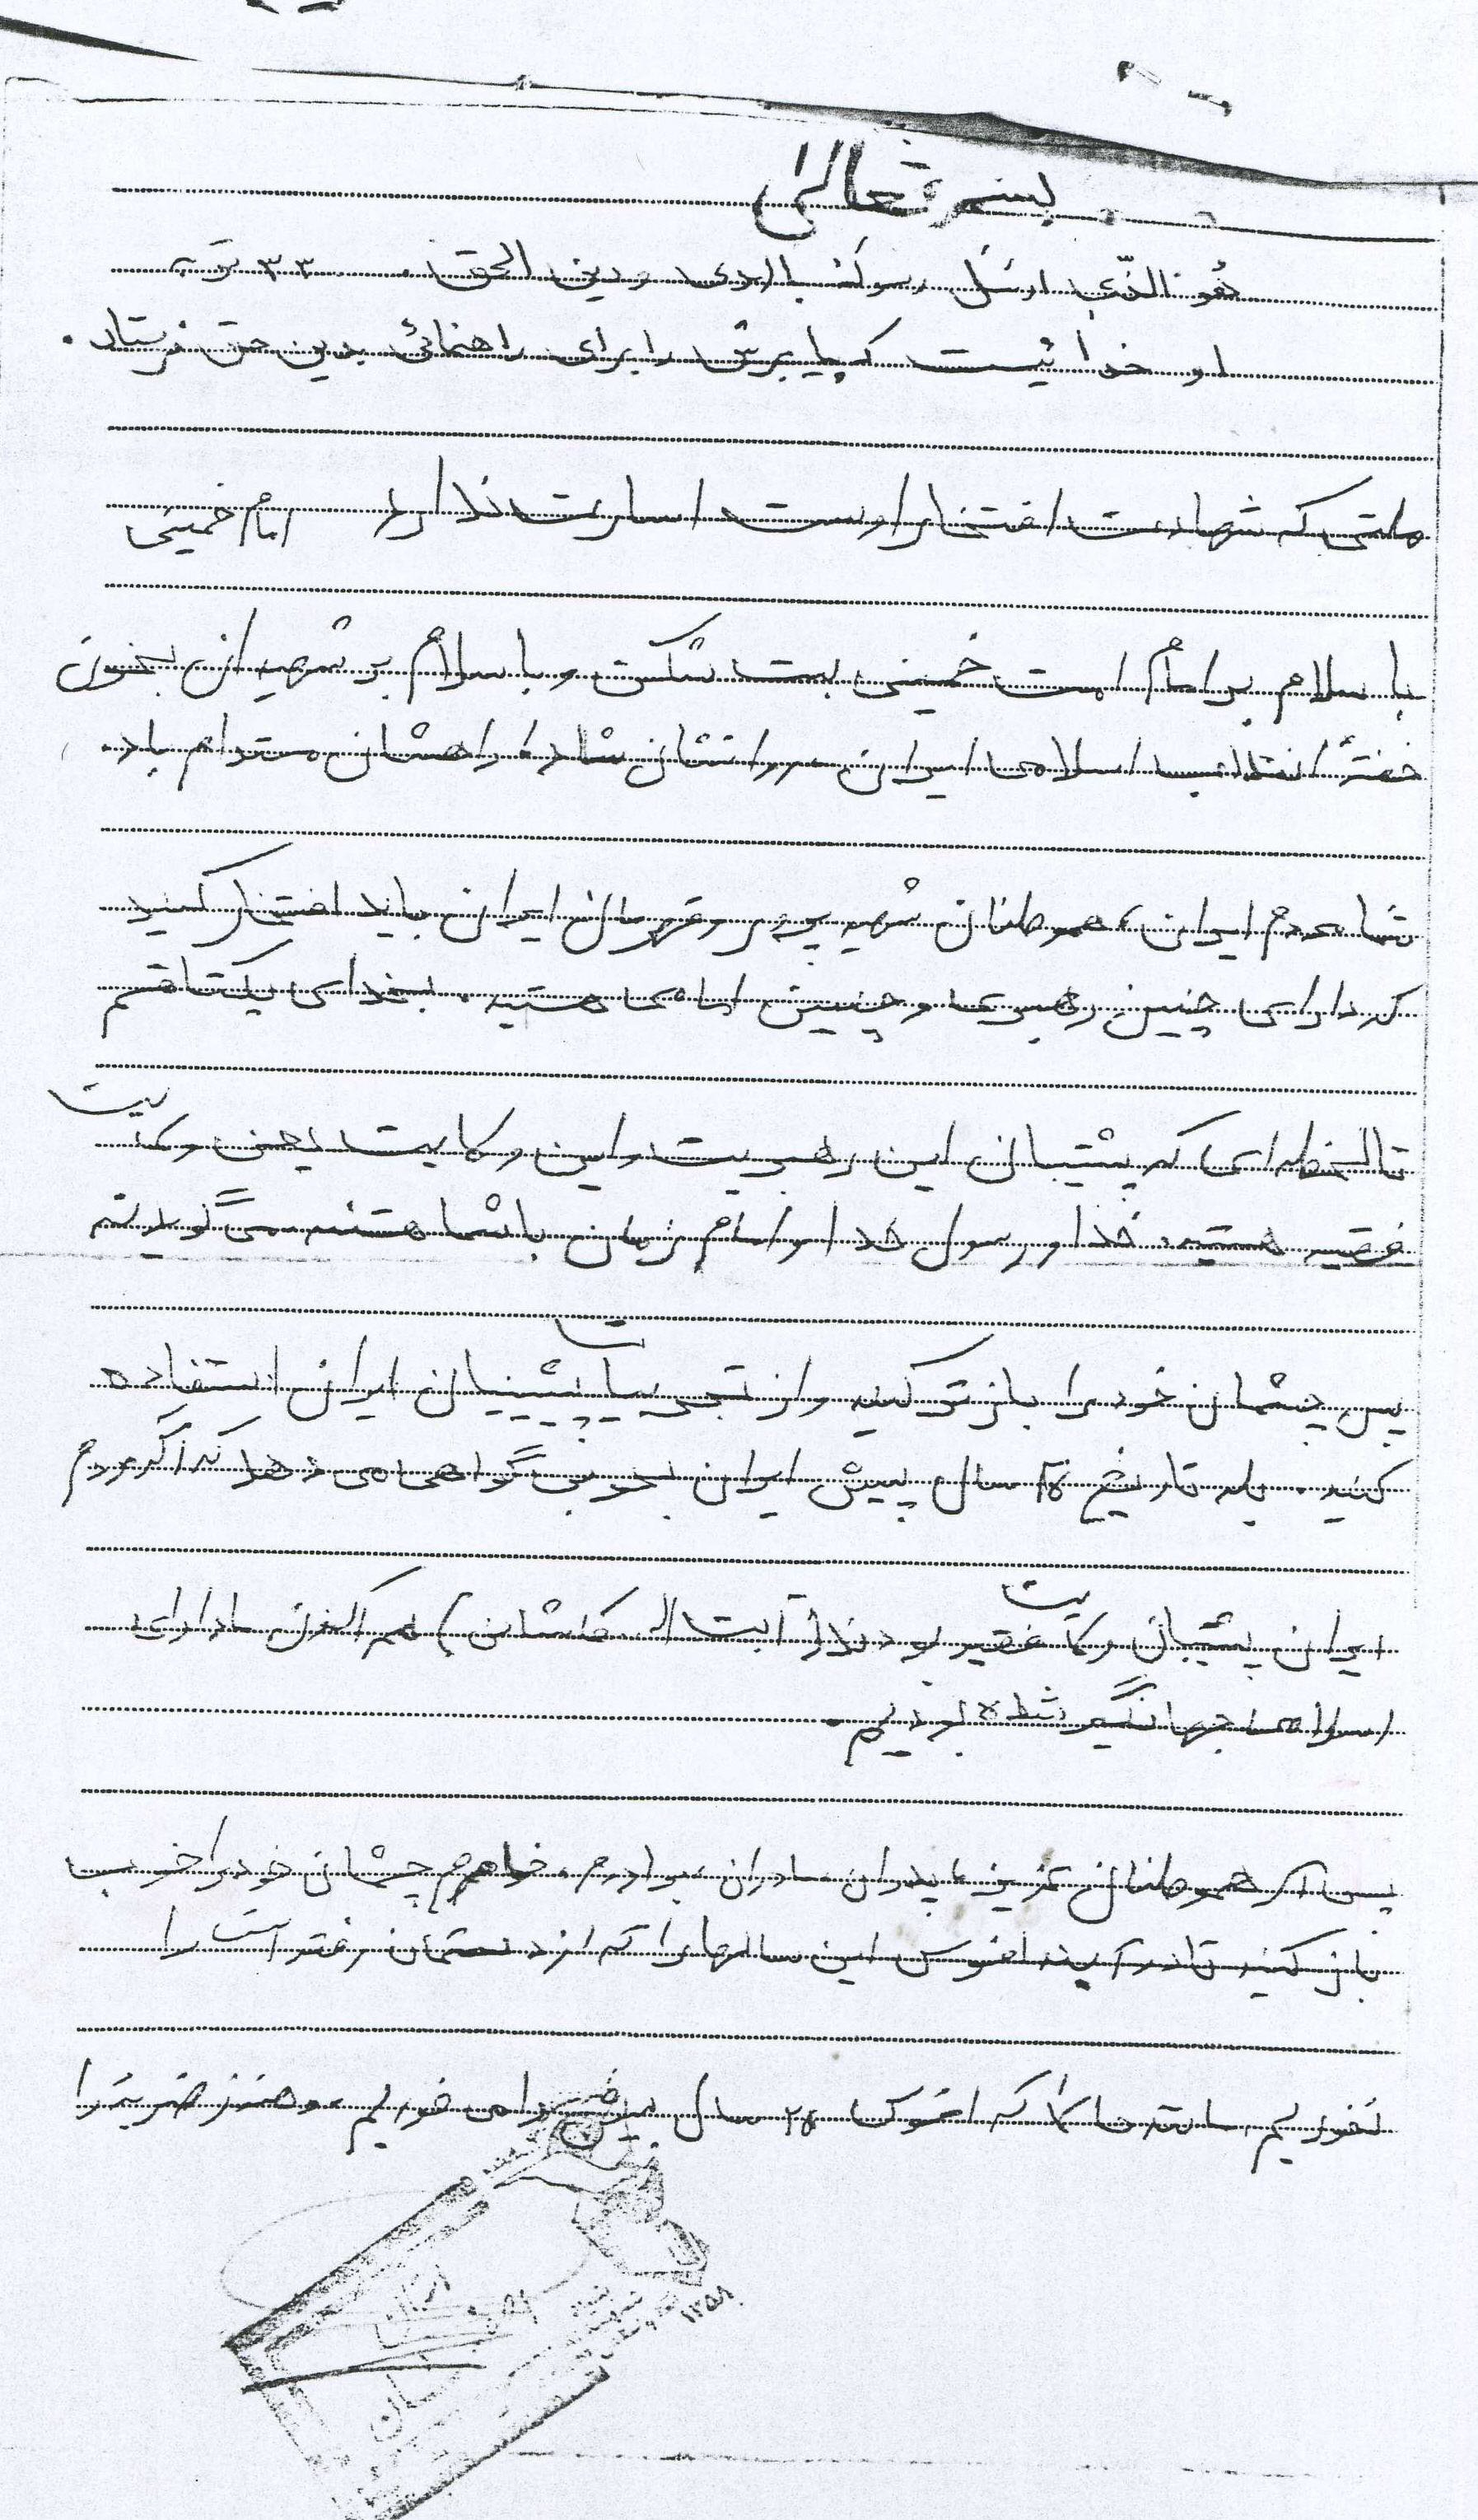 بسمه تعالی
هُوَ الذّی ارسَل رسولَهُ بالهدی و دین الحق ۳۳ توبه
او خدائیست که پیامبرش را برای راهنمائی بدین حق فرستاد.
ملتی که شهادت افتخار اوست اسارت ندارد امام خمینی
با سلام بر امام امت خمینی بت شکن و با سلام بر شهیدان بخون
خفتهٔ انقلاب اسلامی ایران روانشان شاد، راهشان مستدام باد.
شما مردم ایران، هموطنان شهید پرور و قهرمان ایران باید افتخار کنید
که دارای چنین رهبری و چنین امامی هستید. بخدای یکتا قسم
تا لحظه ای که پشتیبان این رهبریت و این ولایت یعنی ولایت
فقیه هستید. خدا و رسول خدا و امام زمان با شما هستند
پس چشمان خود را باز تر کنید و از تجربیات پیشینیان ایران استفاده
کنید. بله تاریخ ۲۵ سال پیش ایران بخوبی گواهی می دهد که اگر مردم
ایران پشتیبان ولایت فقیه بودند (آیت اله کاشانی) هم اکنون ما دارای
اسلامی جهانگیر شده بودیم.
پس ای هموطنان عزیز، پدران، مادران، برادرم، خواهرم چشمان خود را خوب
باز کنید تا در آینده افسوس این سالها را که از دستمان رفته است را
نخوریم مانند حالا که افسوس ۲۵ سال پیش را می خوریم و هنوز ضربهٔ را
۱۳۵۸